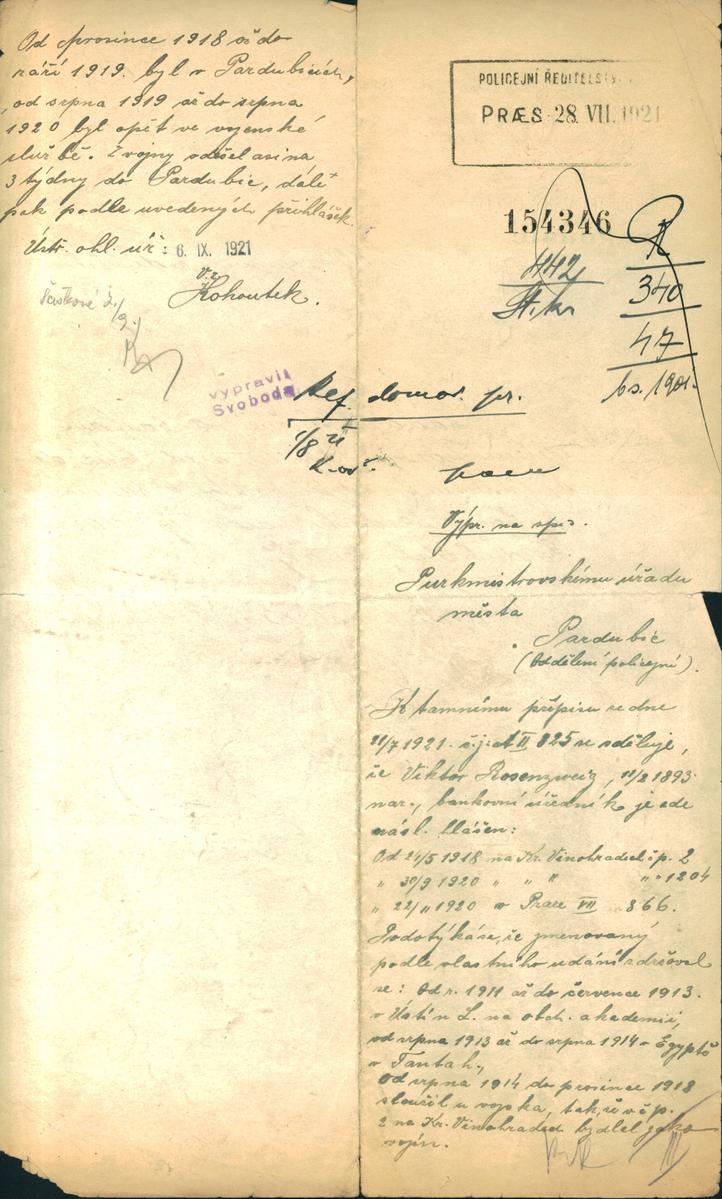 POLICEJNÍ ŘEDITELSTV
PRÆS. 28. VII. 1921
154346
442
St. kr.
R
340
47
bs. 1921.
Ref. domov. pr.
1/8 21
Výpr. na spis.
Purkmistrovskému úřadu
města
Pardubic
(Oddělení policejní).
K tamnímu přípisu ze dne
11/7 1921. č.j. A II 825 se sděluje,
že Viktor Rosenzweig, 11/2 1893
nar., bankovní úředník je zde
násl. hlášen:
Od 24/5 1918 na Kr. Vinohradech čp. 2
" 30/9 1920 " " " " " 1204
" 22/11 1920 v Praze VII 866.
Podotýká se, že jmenovaný
podle vlastního udání zdržoval
se: Od r. 1911 až do července 1913.
v Ústí n L. na obch. akademii,
od srpna 1913 až do srpna 1914 v Egyptě
v Tantah,
Od srpna 1914 do prosince 1918
sloužil u vojska, takže v čp.
2 na Kr. Vinohradech bydlel jako
vojín.
Od prosince 1918 až do
září 1919. byl v Pardubicích,
od srpna 1919 až do srpna
1920 byl opět ve vojenské
službě. Z vojny odešel asi na
3 týdny do Pardubic, dále
pak podle uvedených přihlášek.
Ústř. ohl. úř.: 6. IX. 1921
V.z.
Kohoutek.
2./9.
vypravil
Svoboda